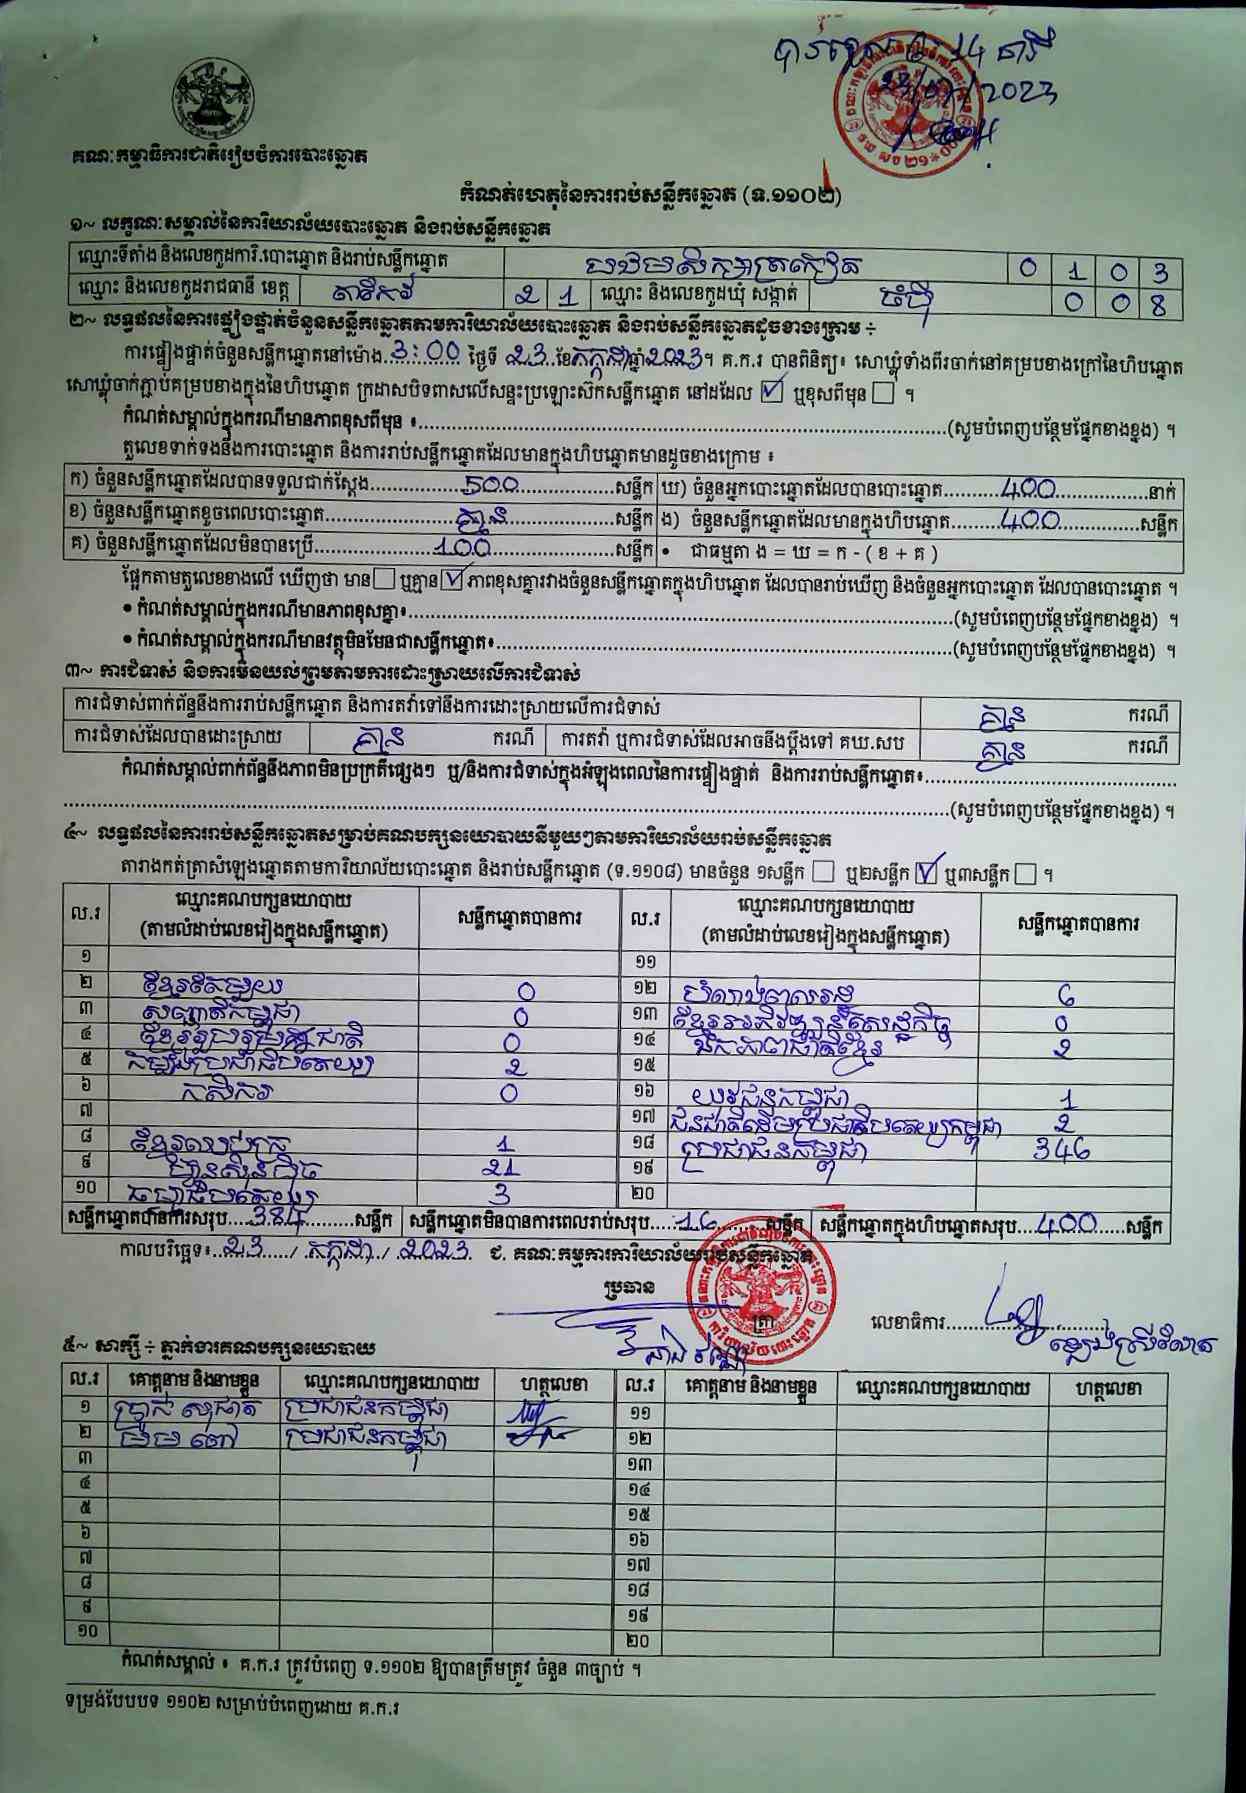 14
23/07/2023
គណៈកម្មាធិការជាតិរៀបចំការបោះឆ្នោត
កំណត់ហេតុនៃការរាប់សន្លឹកឆ្នោត (ទ.១១០២)
១~ លក្ខណៈសម្គាល់នៃការិយាល័យបោះឆ្នោត និងរាប់សន្លឹកឆ្នោត
ឈ្មោះទីតាំង និងលេខកូដការិ.បោះឆ្នោត និងរាប់សន្លឹកឆ្នោត បឋមសិក្សាត្រកៀត 0 1 0 3
ឈ្មោះ និងលេខកូដរាជធានី ខេត្ត តាកែវ 2 1 ឈ្មោះ និងលេខកូដឃុំ សង្កាត់ ចំប៉ី 0 0 8
២~ លទ្ធផលនៃការផ្ទៀងផ្ទាត់ចំនួនសន្លឹកឆ្នោតតាមការិយាល័យបោះឆ្នោត និងរាប់សន្លឹកឆ្នោតដូចខាងក្រោម ÷
ការផ្ទៀងផ្ទាត់ចំនួនសន្លឹកឆ្នោតនៅម៉ោង 3:00 ថ្ងៃទី 23 ខែកក្កដាឆ្នាំ2023។ គ.ក.រ បានពិនិត្យ៖ សោឃ្លុំទាំងពីរចាក់នៅគម្របខាងក្រៅនៃហិបឆ្នោត
សោឃ្លុំចាក់ភ្ជាប់គម្របខាងក្នុងនៃហិបឆ្នោត ក្រដាសបិទពាសលើសន្ទះប្រឡោះស៊កសន្លឹកឆ្នោត នៅដដែល ☑ ឬខុសពីមុន ☐ ។
កំណត់សម្គាល់ក្នុងករណីមានភាពខុសពីមុន ៖ (សូមបំពេញបន្ថែមផ្នែកខាងខ្នង) ។
តួលេខទាក់ទងនឹងការបោះឆ្នោត និងការរាប់សន្លឹកឆ្នោតដែលមានក្នុងហិបឆ្នោតមានដូចខាងក្រោម ៖
ក) ចំនួនសន្លឹកឆ្នោតដែលបានទទួលជាក់ស្តែង 500 សន្លឹក ឃ) ចំនួនអ្នកបោះឆ្នោតដែលបានបោះឆ្នោត 400 នាក់
ខ) ចំនួនសន្លឹកឆ្នោតខូចពេលបោះឆ្នោត គ្មាន សន្លឹក ង) ចំនួនសន្លឹកឆ្នោតដែលមានក្នុងហិបឆ្នោត 400 សន្លឹក
គ) ចំនួនសន្លឹកឆ្នោតដែលមិនបានប្រើ 100 សន្លឹក • ជាធម្មតា ង = ឃ = ក - ( ខ + គ )
ផ្អែកតាមតួលេខខាងលើ ឃើញថា មាន ☐ ឬគ្មាន ☑ ភាពខុសគ្នារវាងចំនួនសន្លឹកឆ្នោតក្នុងហិបឆ្នោត ដែលបានរាប់ឃើញ និងចំនួនអ្នកបោះឆ្នោត ដែលបានបោះឆ្នោត ។
• កំណត់សម្គាល់ក្នុងករណីមានភាពខុសគ្នា៖ (សូមបំពេញបន្ថែមផ្នែកខាងខ្នង) ។
• កំណត់សម្គាល់ក្នុងករណីមានវត្ថុមិនមែនជាសន្លឹកឆ្នោត៖ (សូមបំពេញបន្ថែមផ្នែកខាងខ្នង) ។
៣~ ការជំទាស់ និងការមិនយល់ព្រមតាមការដោះស្រាយលើការជំទាស់
ការជំទាស់ពាក់ព័ន្ធនឹងការរាប់សន្លឹកឆ្នោត និងការតវ៉ាទៅនឹងការដោះស្រាយលើការជំទាស់ គ្មាន ករណី
ការជំទាស់ដែលបានដោះស្រាយ គ្មាន ករណី ការតវ៉ា ឬការជំទាស់ដែលអាចនឹងប្តឹងទៅ គឃ.សប គ្មាន ករណី
កំណត់សម្គាល់ពាក់ព័ន្ធនឹងភាពមិនប្រក្រតីផ្សេងៗ ឬ/និងការជំទាស់ក្នុងអំឡុងពេលនៃការផ្ទៀងផ្ទាត់ និងការរាប់សន្លឹកឆ្នោត៖
(សូមបំពេញបន្ថែមផ្នែកខាងខ្នង) ។
៤~ លទ្ធផលនៃការរាប់សន្លឹកឆ្នោតសម្រាប់គណបក្សនយោបាយនីមួយៗតាមការិយាល័យរាប់សន្លឹកឆ្នោត
តារាងកត់ត្រាសំឡេងឆ្នោតតាមការិយាល័យបោះឆ្នោត និងរាប់សន្លឹកឆ្នោត (ទ.១១០៨) មានចំនួន ១សន្លឹក ☐ ឬ២សន្លឹក ☑ ឬ៣សន្លឹក ☐ ។
ល.រ ឈ្មោះគណបក្សនយោបាយ (តាមលំដាប់លេខរៀងក្នុងសន្លឹកឆ្នោត) សន្លឹកឆ្នោតបានការ ល.រ ឈ្មោះគណបក្សនយោបាយ (តាមលំដាប់លេខរៀងក្នុងសន្លឹកឆ្នោត) សន្លឹកឆ្នោតបានការ
១ ១១
២ ខ្មែរតែមួយ 0 ១២ សំឡេងពលរដ្ឋ 6
៣ សញ្ជាតិកម្ពុជា 0 ១៣ ខ្មែរអភិវឌ្ឍន៍សេដ្ឋកិច្ច 0
៤ ខ្មែររួបរួមជាតិ 0 ១៤ ឯកភាពជាតិខ្មែរ 2
៥ កម្លាំងប្រជាធិបតេយ្យ 2 ១៥
៦ កសិករ 0 ១៦ យុវជនកម្ពុជា 1
៧ ១៧ ជនជាតិដើមប្រជាធិបតេយ្យកម្ពុជា 2
៨ ខ្មែរឈប់ក្រ 1 ១៨ ប្រជាជនកម្ពុជា 346
៩ ហ្វ៊ុនស៊ិនប៉ិច 21 ១៩
១០ ធម្មាធិបតេយ្យ 3 ២០
សន្លឹកឆ្នោតបានការសរុប 384 សន្លឹក សន្លឹកឆ្នោតមិនបានការពេលរាប់សរុប 16 សន្លឹក សន្លឹកឆ្នោតក្នុងហិបឆ្នោតសរុប 400 សន្លឹក
កាលបរិច្ឆេទ៖ 23 / កក្កដា / 2023 ជ. គណៈកម្មការការិយាល័យរាប់សន្លឹកឆ្នោត
ប្រធាន
ត្រា
លេខាធិការ
៥~ សាក្សី ÷ ភ្នាក់ងារគណបក្សនយោបាយ
ល.រ គោត្តនាម និងនាមខ្លួន ឈ្មោះគណបក្សនយោបាយ ហត្ថលេខា ល.រ គោត្តនាម និងនាមខ្លួន ឈ្មោះគណបក្សនយោបាយ ហត្ថលេខា
១ ប្រជាជនកម្ពុជា ១១
២ ប្រជាជនកម្ពុជា ១២
៣ ១៣
៤ ១៤
៥ ១៥
៦ ១៦
៧ ១៧
៨ ១៨
៩ ១៩
១០ ២០
កំណត់សម្គាល់ ៖ គ.ក.រ ត្រូវបំពេញ ទ.១១០២ ឱ្យបានត្រឹមត្រូវ ចំនួន ៣ច្បាប់ ។
ទម្រង់បែបបទ ១១០២ សម្រាប់បំពេញដោយ គ.ក.រ